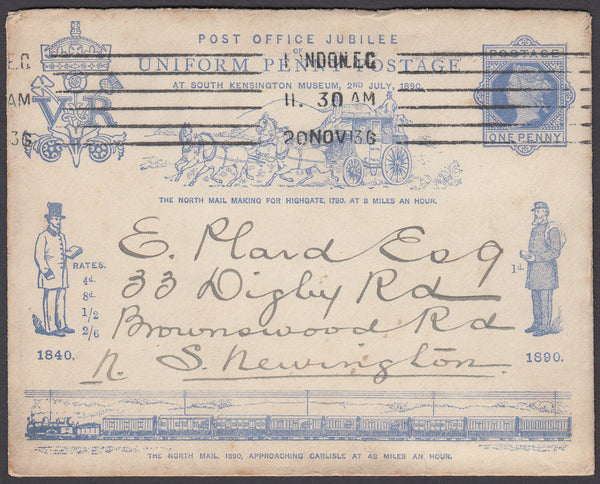 POST OFFICE JUBILEE
OF
UNIFORM PENNY POSTAGE
AT SOUTH KENSINGTON MUSEUM, 2ND JULY, 1890.
POSTAGE
ONE PENNY
V R
LONDON.E.C.
11. 30 AM
20 NOV 36
E.C.
AM
36
THE NORTH MAIL MAKING FOR HIGHGATE, 1790, AT 8 MILES AN HOUR.
RATES.
4d.
8d.
1/2
2/6
1840.
1d.
1890.
E. Plard Esq
33 Digby Rd
Brownswood Rd
N. S. Newington.
THE NORTH MAIL, 1890, APPROACHING CARLISLE AT 48 MILES AN HOUR.